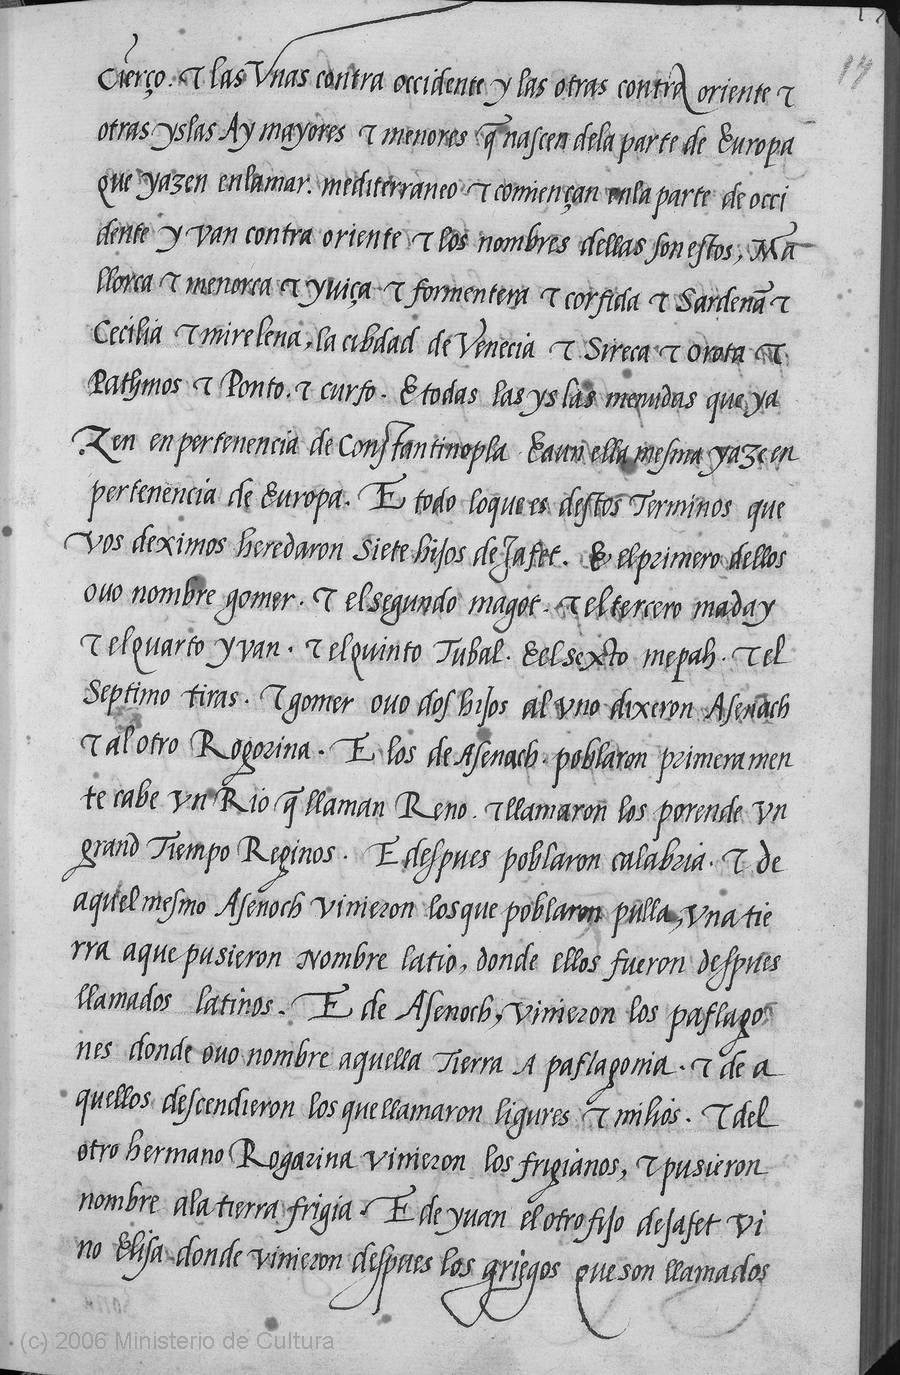 17
14
Cierço. τ las Vnas contra occidente y las otras contra oriente τ
otras yslas Ay mayores τ menores q̃ nascen dela parte de Europa
que yazen enlamar. mediterraneo τ comiençan enla parte de occi
dente y van contra oriente τ los nombres dellas son estos, Ma
llorca τ menorca τ yviça τ formentera τ corsida τ Sardenã τ
Cecilia τ mirelena, la cibdad de Venecia τ Sireca τ Orota τ
Pathmos τ Ponto. τ curfo. E todas las yslas menudas que ya
Zen en pertenencia de Constantinopla E aun ella mesma yaze en
pertenencia de Europa. E todo loque es destos Terminos que
vos deximos heredaron Siete hijos de Jafet. E el primero dellos
ouo nombre gomer. τ el segundo magot. τ el tercero maday
τ el quarto yvan. τ el quinto Tubal. E el sexto mepah. τ el
Septimo tiras. τ gomer ouo dos hijos al vno dixeron Asenach
τ al otro Rogorina. E los de Asenach. poblaron primeramen
te cabe vn Rio q̃ llaman Reno. τ llamaron los porende vn
grand Tiempo Reginos. E despues poblaron calabria. τ de
aquel mesmo Asenoch vinieron los que poblaron pulla, vna tie
rra aque pusieron Nombre latio, donde ellos fueron despues
llamados latinos. E de Asenoch, vinieron los paflago
nes donde ouo nombre aquella Tierra A paflagonia. τ de a
quellos descendieron los que llamaron ligures τ milios. τ del
otro hermano Rogarina vinieron los frigianos, τ pusieron
nombre ala tierra frigia. E de yuan el otro fijo de Jafet vi
no Elisa donde vinieron despues los griegos que son llamados
(c) 2006 Ministerio de Cultura